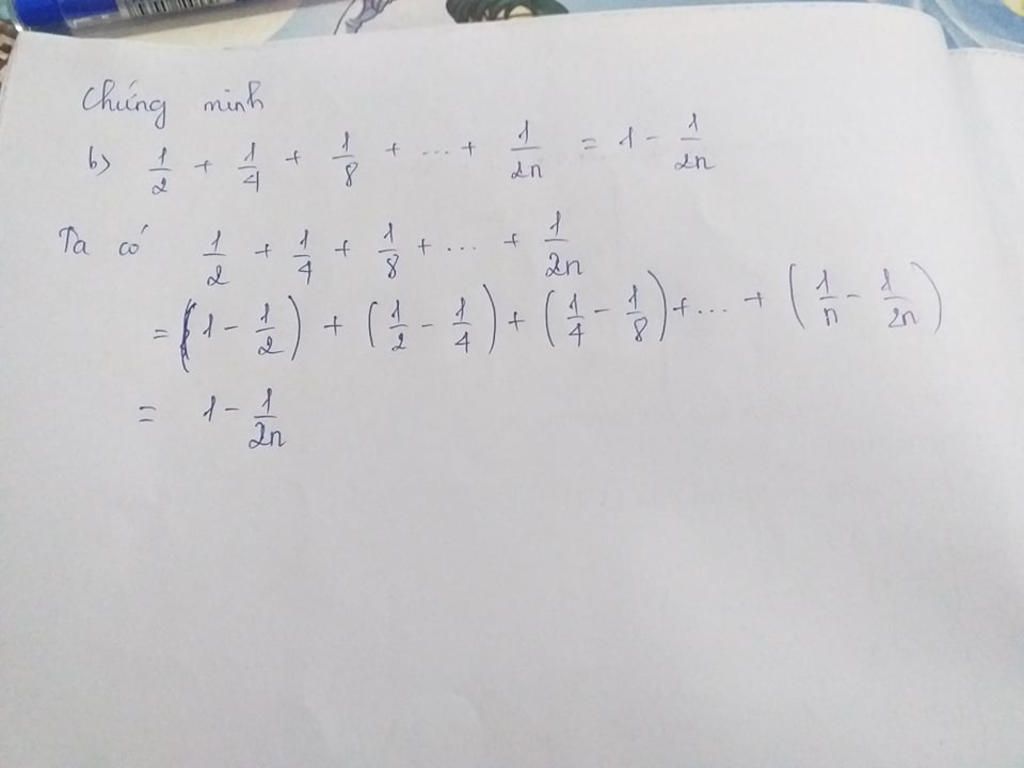 Chứng minh
b) 1/2 + 1/4 + 1/8 + ... + 1/2n = 1 - 1/2n
Ta có 1/2 + 1/4 + 1/8 + ... + 1/2n
= (1 - 1/2) + (1/2 - 1/4) + (1/4 - 1/8) + ... + (1/n - 1/2n)
= 1 - 1/2n